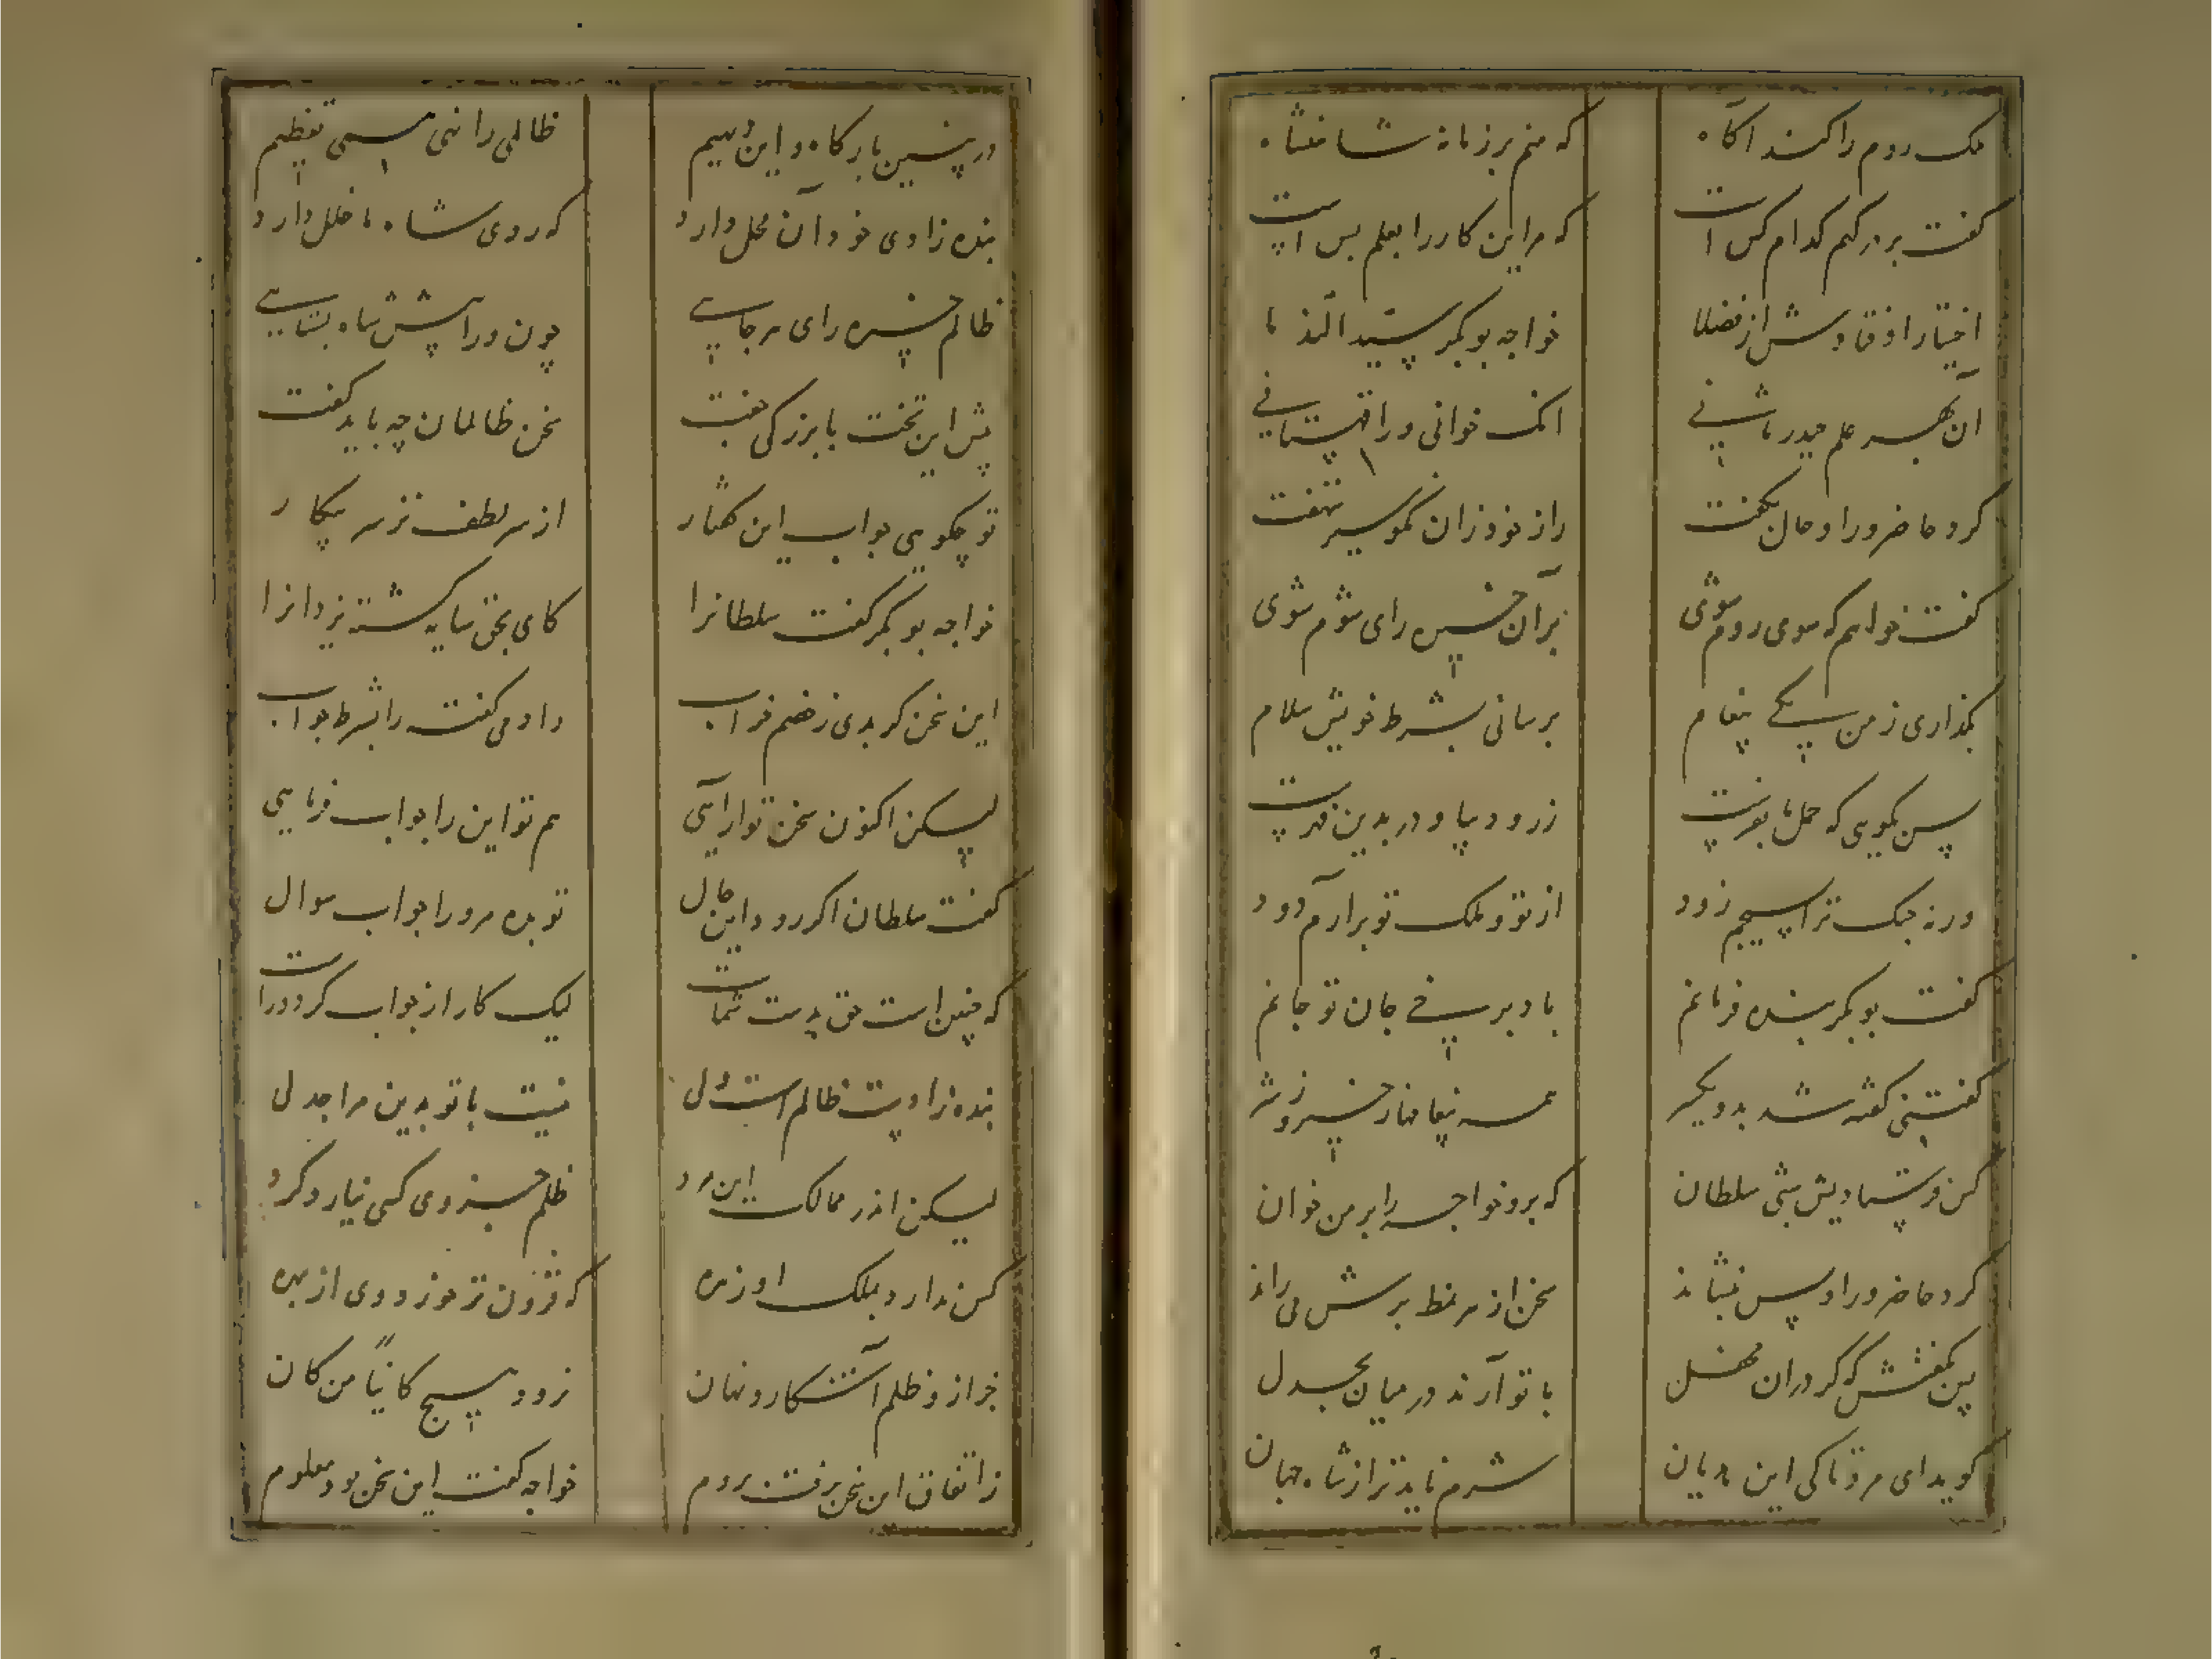 ملک روم را کند آگاه    که منم بر زمانه شاهنشاه
گفت بر درگهم کدام کس است    که مر این کار را بعلم بس است
اختیار اوفتادش از فضلا    خواجه بوبکر سید الندما
آن بهر علم حیدر ثانی    آنک خوانی ورا قهستانی
کرد حاضر ورا و حال بگفت    راز خود زان نکوسیر ننهفت
گفت خواهم که سوی روم شوی    بر آن خیره رای شوم شوی
بگذاری ز من یکی پیغام    برسانی بشرط خویش سلام
پس بگویی که حمل ما بفرست    زر و دیبا و در بدین فهرست
ورنه جنگ ترا بسیجم زود    از تو و ملک تو برآرم دود
گفت بوبکر بنده فرمانم    باد بر پی جان تو جانم
گفتنی گفته شد بدو یکسر    همه پیغامهاز خیر و ز شر
کس فرستاد پیش شبی سلطان    که برو خواجه را بر من خوان
کرد حاضر ورا و پس بنشاند    سخن از هر نمط برش می‌راند
پس بگفتش که گر در آن محفل    با تو آرند در میان جدل
گوید ای مرد تا کی این هذیان    شرم ناید ترا ز شاه جهان
در چنین بارگاه و این دیهیم    ظالمی را نهی همی تعظیم
بنده زادی خود آن محل دارد    که ردی شاه ما خلل دارد
ظالم خیره رای هر جایی    چون ورا پیش شاه بستایی
پیش این تخت با بزرگی جفت    سخن ظالمان چه باید گفت
تو چگویی جواب این گفتار    از سر لطف نز سر پیکار
خواجه بوبکر گفت سلطانرا    کای بحق سایه گشته یزدانرا
این سخن گر بدی ز خصم خراب    دادمی گفت را بشرط جواب
لیکن اکنون سخن تو آرایی    هم تو این را جواب فرمایی
گفت سلطان اگر رود این حال    تو بده مر ورا جواب سوال
که چنین است حق بدست شماست    لیک کار از جواب گردد راست
بنده زادست ظالم است ول    نیست با تو بدین مرا جدلی
لیکن اندر ممالک این مرد    ظلم جز وی کسی نیارد کرد
کس ندارد بملک او زهره    که فزون تر خورد وی از بهره
جز از و ظلم آشکار و نهان    نرود هیچ کائناً من کان
ز اتفاق این سخن برفت بروم    خواجه گفت این سخن بود معلوم